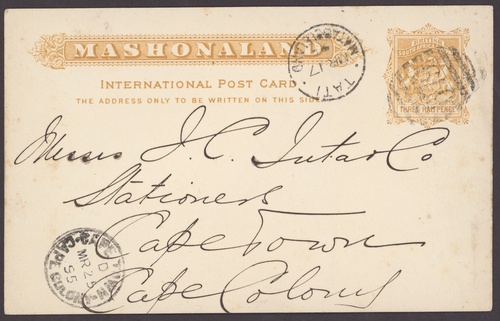 MASHONALAND
INTERNATIONAL POST CARD
THE ADDRESS ONLY TO BE WRITTEN ON THIS SIDE
TATI
MR 17
THREE HALFPENCE
Messrs J. C. Juta & Co
Stationers
Cape Town
Cape Colony
CAPE TOWN
D
MR 23
95
CAPE COLONY